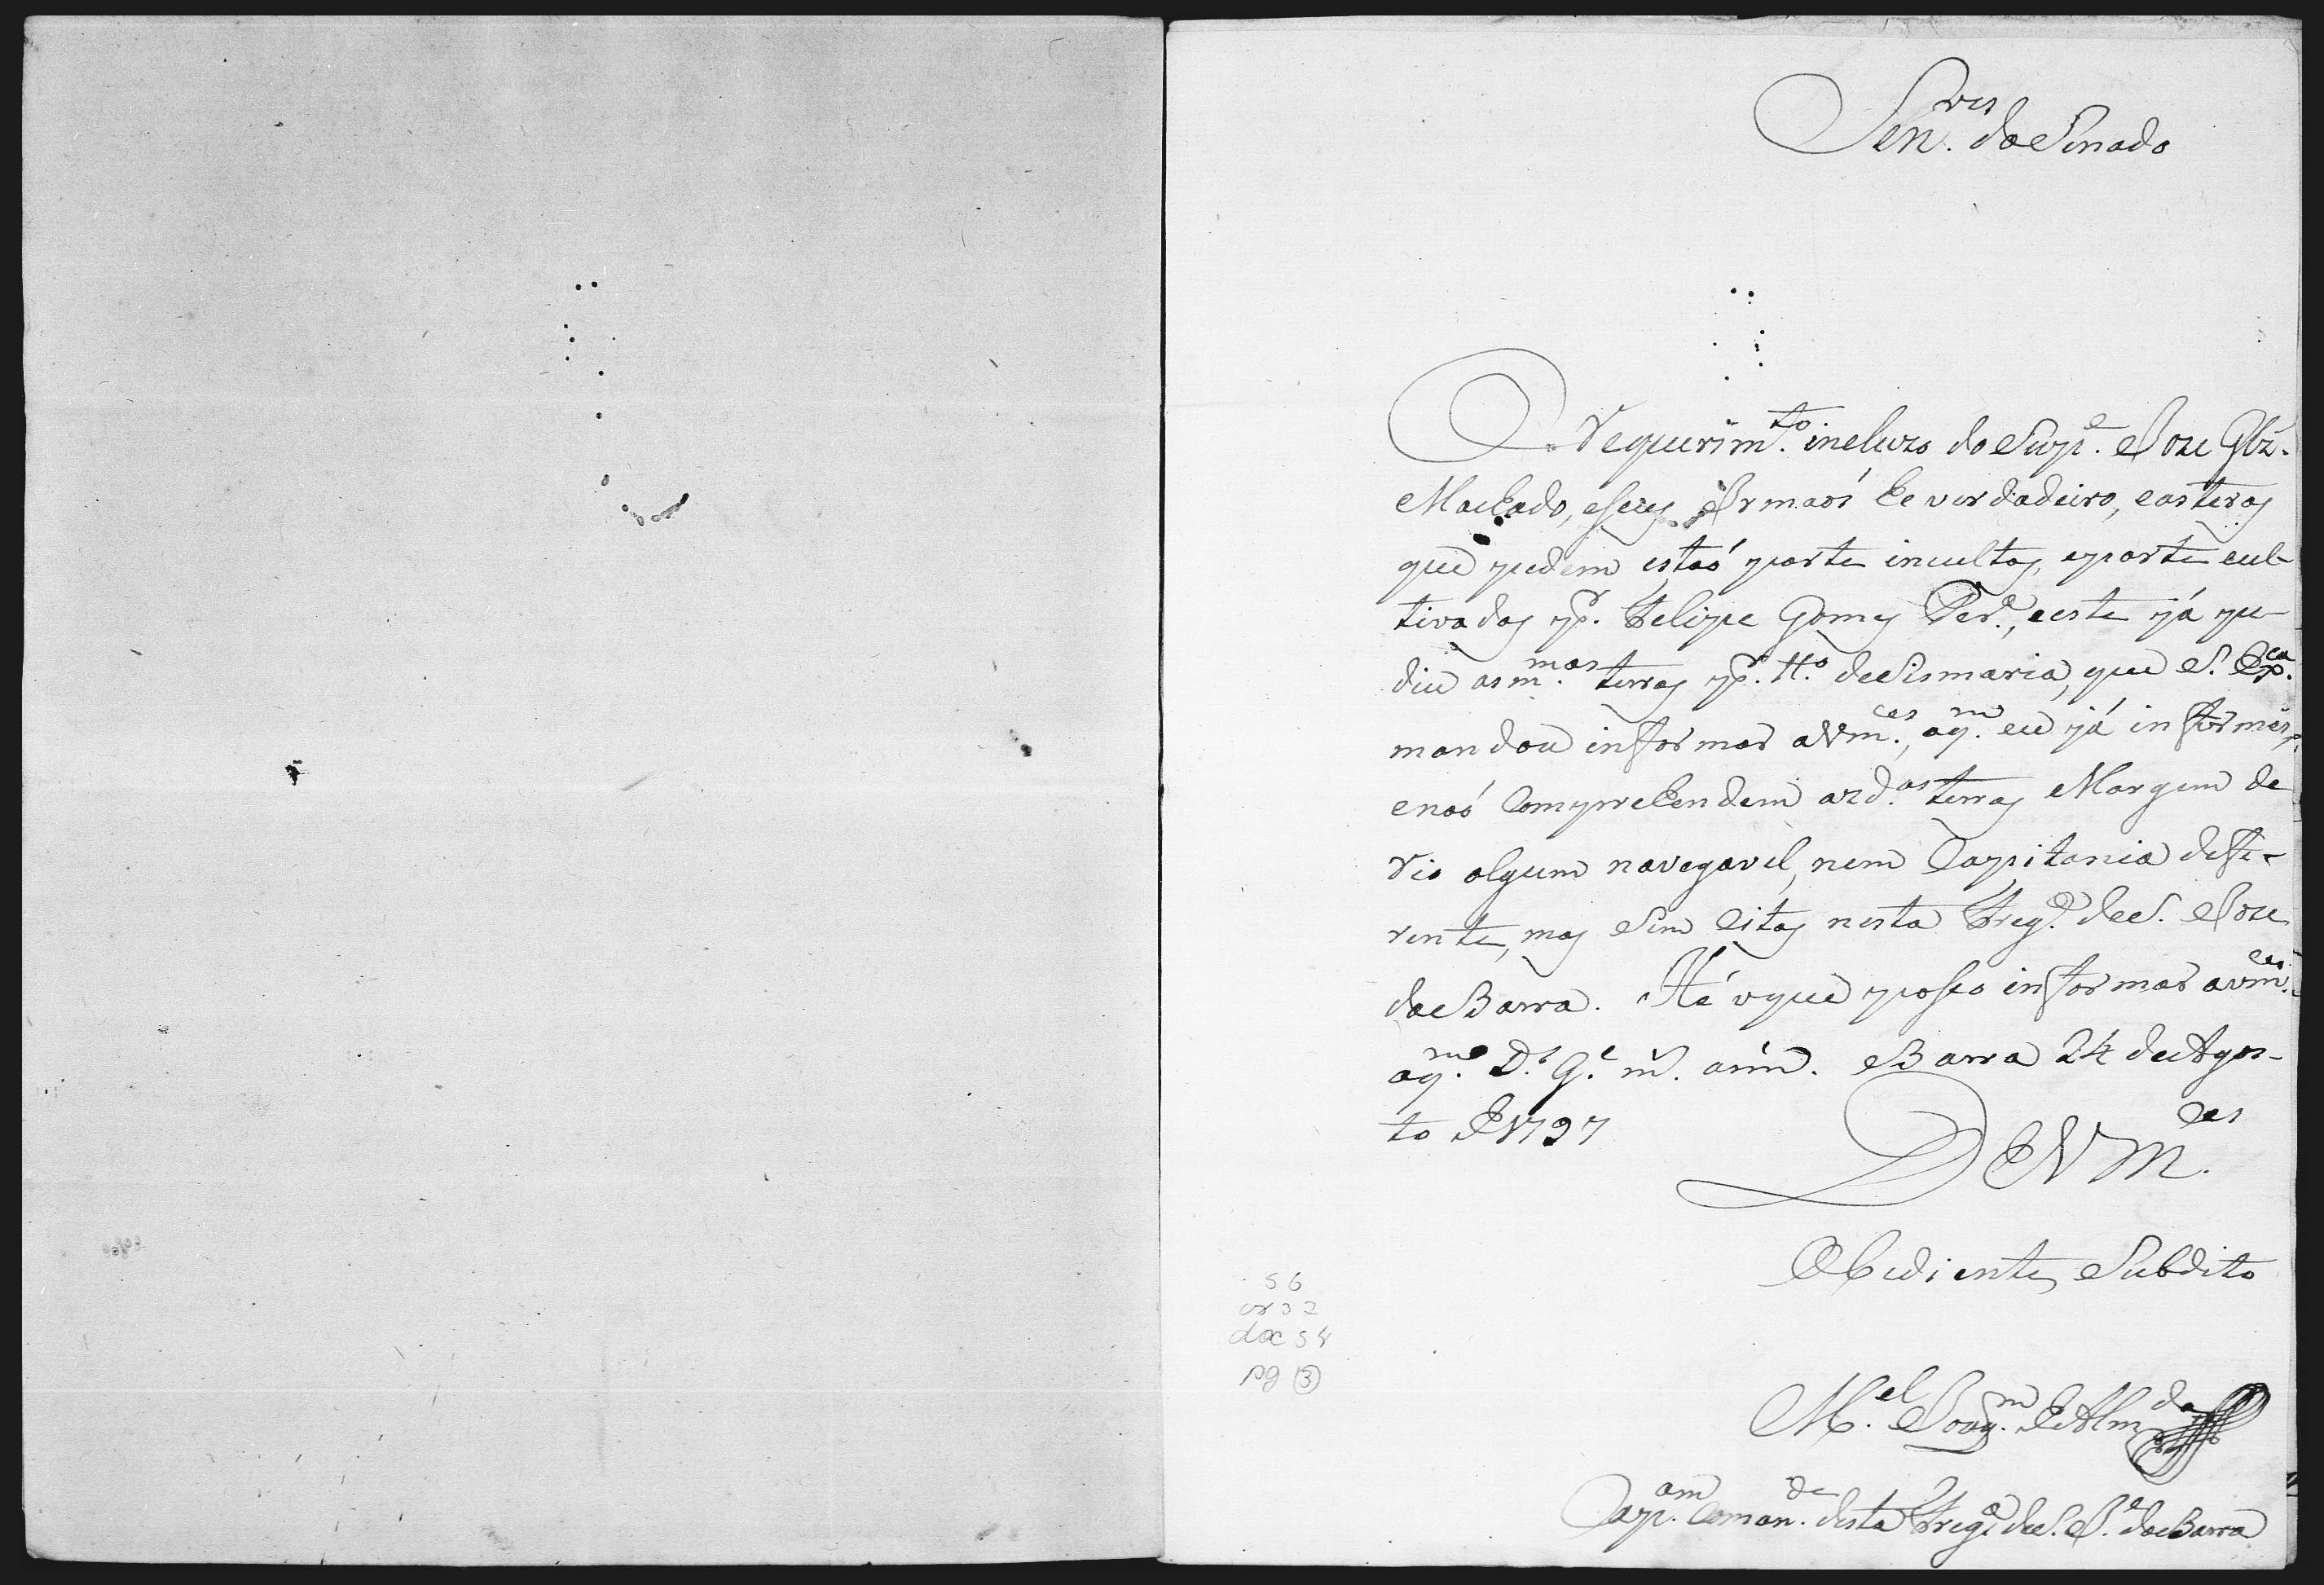 Sen.res do Senado
O Requerim.to incluzo do Sup.e Joze Glz.
Machado, eseus Irmaós he verdadeiro, easteras
que pedem estaó parte incultas, eparte cul-
tivadas p.r Felipe Gomes Per.a, eeste já pe-
diu asm.mas terras p.r tt.o deSismaria, que S. Ex.ca
mandou informar aVm.ces, aq.m eu já informei,
enaó Comprehendem azd.as terras Margem de
Rio algum navegavel, nem Capitania defe-
rente, mas Sim Citas nesta Freg.a deS. Joze
daBarra. Hé oque poso informar avm.ces
aq.m D.s G.e m.s ann.s Barra 24 deAgos-
to de1797
DeVm.ces
Obediente Subdito
M.el Joaq.m deAlm.da
Cap.am Coman.de desta Freg.a deS. J.e daBarra
56
cx 32
doc 54
pg 3